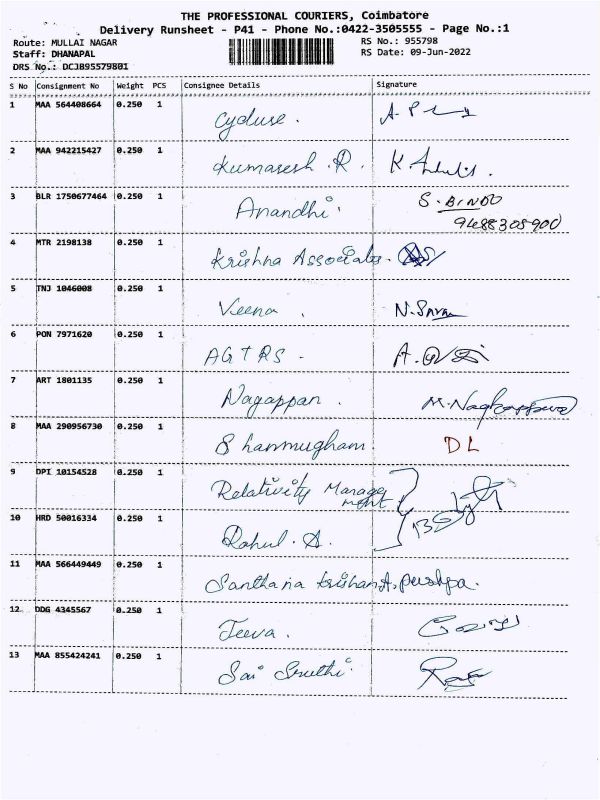 THE PROFESSIONAL COURIERS, Coimbatore
Delivery Runsheet - P41 - Phone No.:0422-3505555 - Page No.:1
Route: MULLAI NAGAR RS No.: 955798
Staff: DHANAPAL RS Date: 09-Jun-2022
DRS No.: DCJB95579801
S No Consignment No Weight PCS Consignee Details Signature
1 MAA 564408664 0.250 1
2 MAA 942215427 0.250 1 Kumaresh. R.
3 BLR 1750677464 0.250 1 Anandhi. S. BINDU
9488305900
4 MTR 2198138 0.250 1 Krishna Associates.
5 TNJ 1046008 0.250 1 Veena.
6 PON 7971620 0.250 1 AGTRS.
7 ART 1801135 0.250 1 Nagappan.
8 MAA 290956730 0.250 1 Shanmugham DL
9 DPI 10154528 0.250 1 Relativity Manage
ment
10 HRD 50016334 0.250 1 Rahul. A.
11 MAA 566449449 0.250 1 Santhana Krishan
12 DDG 4345567 0.250 1 Jeeva.
13 MAA 855424241 0.250 1 Sai Sruthi.